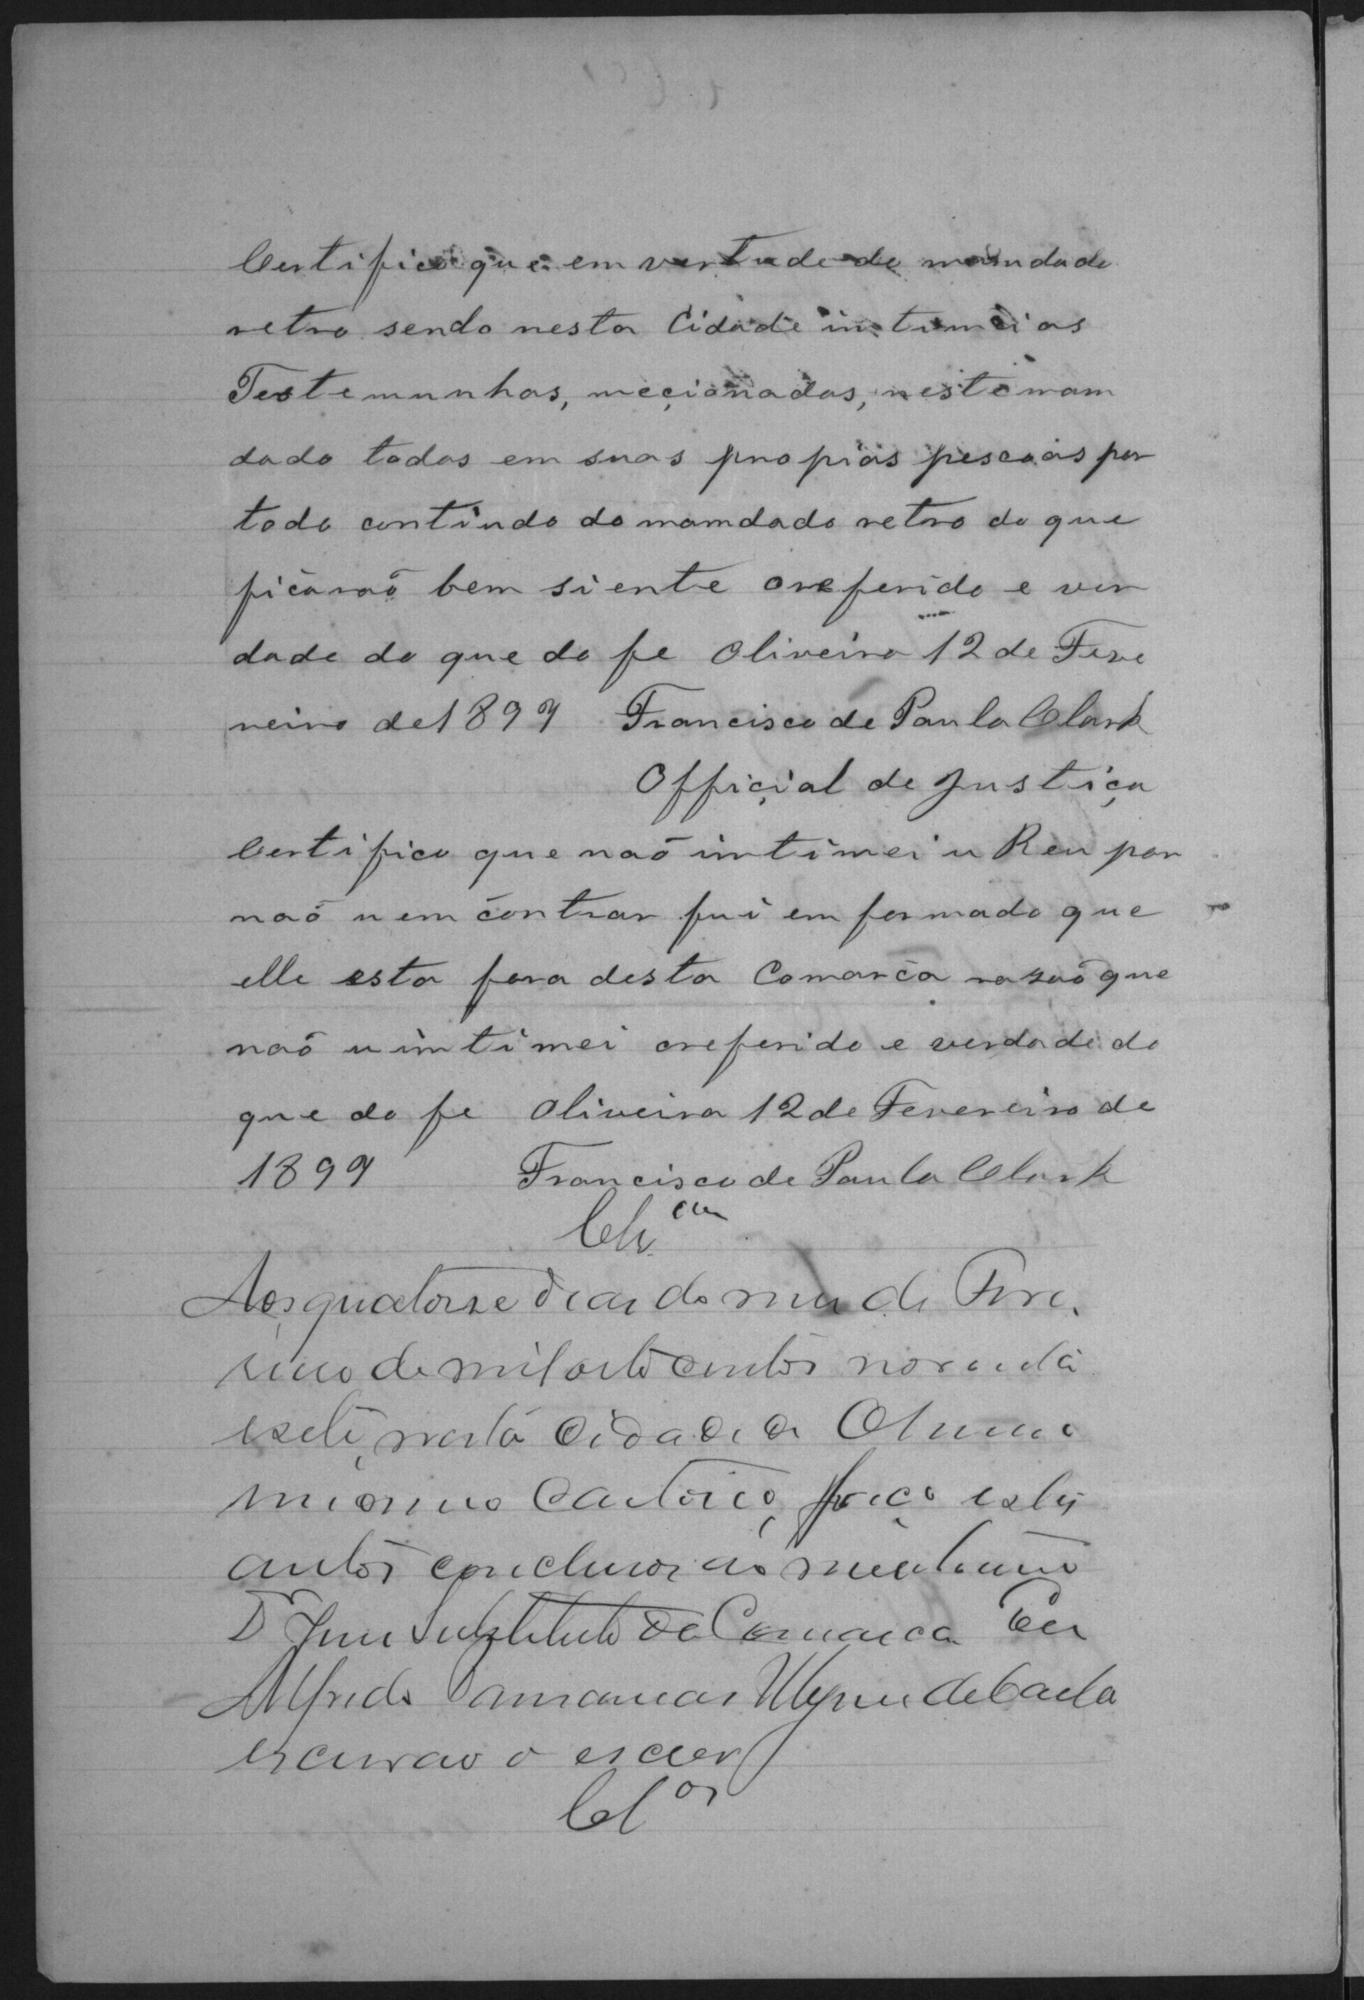 Certifico que em vertude do mamdado
retro sendo nesta Cidade intimei as
Testemunhas, meçionadas, neste mam
dado todas em suas propias pescoas por
todo contiudo do mamdado retro do que
ficaraõ bem siente oreferido e ver
dade do que do fe Oliveira 12 de Feve
reiro de 1897 Francisco de Paula Clark
Offiçial de Justiça
Certifico que naõ imtimei u Reu por
naõ u em contrar fui em formado que
elle esta fora desta Comarca rasaõ que
naõ u imtimei oreferido e verdade do
que do fe Oliveira 12 de Fevereiro de
1897 Francisco de Paula Clark
Aos quatorse dias do mes de Feve,
reiro de mil oito centos noventa
e sete, nesta cidade de Oliveira
em meu Cartorio, faço estes
autos conclusos ao meritissimo
Dr Juis Substituto da Comarca Eu
Alfredo de Castro
escrivao o escrevi
Cl.os